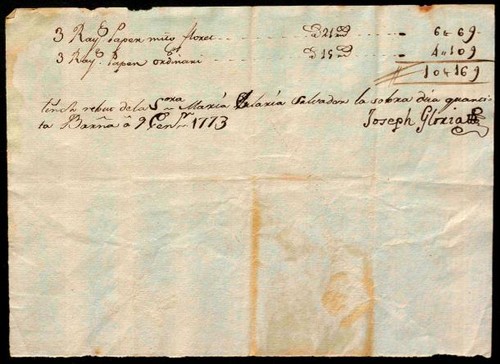 3 Ray.s Paper mitg floret - - - - - - - - - - 6 ₶ 6 9
3 Ray.s Paper ordinari - - - - - - - - - - - 4 ₶ 10 9
10 ₶ 16 9
Tinch rebut de la S.ora Maria Salvador la sobra dita quanti-
ta Barña á 9 Gen.r 1773 Joseph Gloria